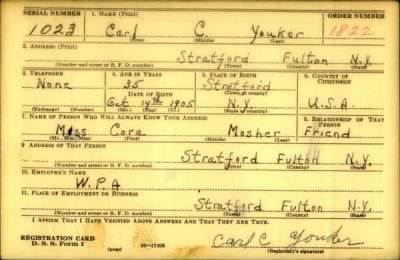 SERIAL NUMBER 1. NAME (Print) ORDER NUMBER
1023 Carl C. Youker 1822
(First) (Middle) (Last)
2. ADDRESS (Print)
Stratford Fulton N.Y.
(Number and street or R. F. D. number) (Town) (County) (State)
3. TELEPHONE 4. AGE IN YEARS 5. PLACE OF BIRTH 6. COUNTRY OF CITIZENSHIP
None 35 Stratford
DATE OF BIRTH (Town or county)
Oct 14th 1905 N.Y. U.S.A.
(Exchange) (Number) (Mo.) (Day) (Yr.) (State or country)
7. NAME OF PERSON WHO WILL ALWAYS KNOW YOUR ADDRESS 8. RELATIONSHIP OF THAT PERSON
Miss Cora Mosher Friend
(Mr., Mrs., Miss) (First) (Middle) (Last)
9. ADDRESS OF THAT PERSON
Stratford Fulton N.Y.
(Number and street or R. F. D. number) (Town) (County) (State)
10. EMPLOYER'S NAME
W.P.A
11. PLACE OF EMPLOYMENT OR BUSINESS
Stratford Fulton N.Y.
(Number and street or R. F. D. number) (Town) (County) (State)
I AFFIRM THAT I HAVE VERIFIED ABOVE ANSWERS AND THAT THEY ARE TRUE.
REGISTRATION CARD
D. S. S. Form 1 (over) 16-17105 Carl C Youker
(Registrant's signature)